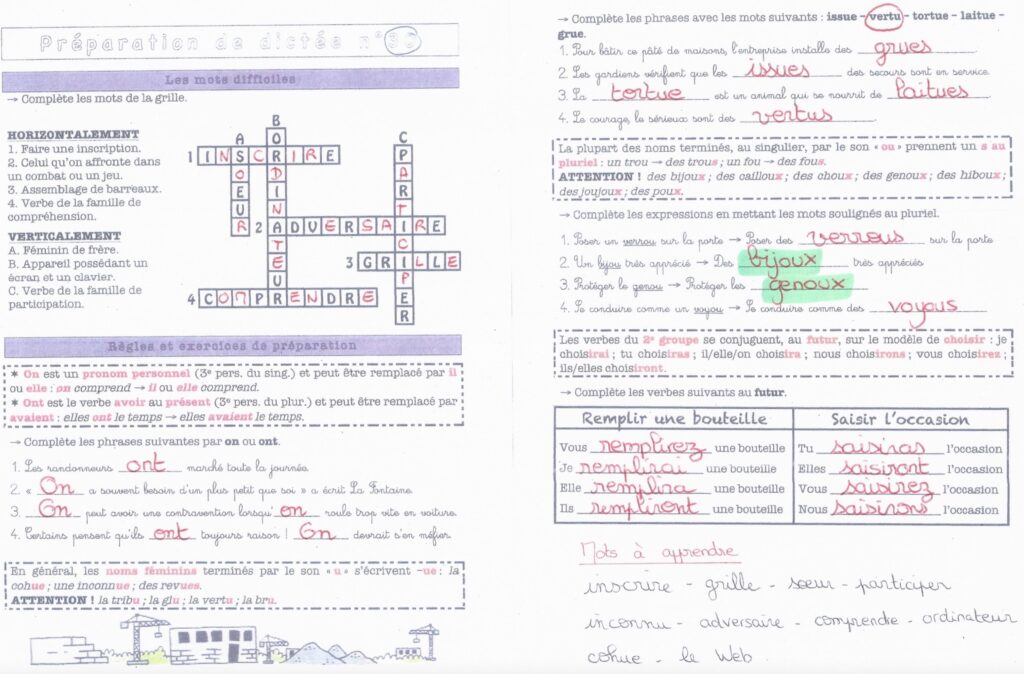 Préparation de dictée n°36
Les mots difficiles
→ Complète les mots de la grille.
HORIZONTALEMENT
1. Faire une inscription.
2. Celui qu'on affronte dans
un combat ou un jeu.
3. Assemblage de barreaux.
4. Verbe de la famille de
compréhension.
VERTICALEMENT
A. Féminin de frère.
B. Appareil possédant un
écran et un clavier.
C. Verbe de la famille de
participation.
A
B
C
1 INSCRIRE
SOEUR
ORDINATEUR
PARTICIPER
2 ADVERSAIRE
3 GRILLE
4 COMPRENDRE
Règles et exercices de préparation
* On est un pronom personnel (3e pers. du sing.) et peut être remplacé par il
ou elle : on comprend → il ou elle comprend.
* Ont est le verbe avoir au présent (3e pers. du plur.) et peut être remplacé par
avaient : elles ont le temps → elles avaient le temps.
→ Complète les phrases suivantes par on ou ont.
1. Les randonneurs ont marché toute la journée.
2. « On a souvent besoin d'un plus petit que soi » a écrit La Fontaine.
3. On peut avoir une contravention lorsqu'on roule trop vite en voiture.
4. Certains pensent qu'ils ont toujours raison ! On devrait s'en méfier.
En général, les noms féminins terminés par le son « u » s'écrivent -ue : la
cohue ; une inconnue ; des revues.
ATTENTION ! la tribu ; la glu ; la vertu ; la bru.
→ Complète les phrases avec les mots suivants : issue - vertu - tortue - laitue -
grue.
1. Pour bâtir ce pâté de maisons, l'entreprise installe des grues.
2. Les gardiens vérifient que les issues des secours sont en service.
3. La tortue est un animal qui se nourrit de laitues.
4. Le courage, le sérieux sont des vertus.
La plupart des noms terminés, au singulier, par le son « ou » prennent un s au
pluriel : un trou → des trous ; un fou → des fous.
ATTENTION ! des bijoux ; des cailloux ; des choux ; des genoux ; des hiboux ;
des joujoux ; des poux.
→ Complète les expressions en mettant les mots soulignés au pluriel.
1. Poser un verrou sur la porte → Poser des verrous sur la porte
2. Un bijou très apprécié → Des bijoux très appréciés
3. Protéger le genou → Protéger les genoux
4. Se conduire comme un voyou → Se conduire comme des voyous
Les verbes du 2e groupe se conjuguent, au futur, sur le modèle de choisir : je
choisirai ; tu choisiras ; il/elle/on choisira ; nous choisirons ; vous choisirez ;
ils/elles choisiront.
→ Complète les verbes suivants au futur.
Remplir une bouteille
Vous remplirez une bouteille
Je remplirai une bouteille
Elle remplira une bouteille
Ils rempliront une bouteille
Saisir l'occasion
Tu saisiras l'occasion
Elles saisiront l'occasion
Vous saisirez l'occasion
Nous saisirons l'occasion
Mots à apprendre
inscrire - grille - sœur - participer
inconnu - adversaire - comprendre - ordinateur
cohue - le Web